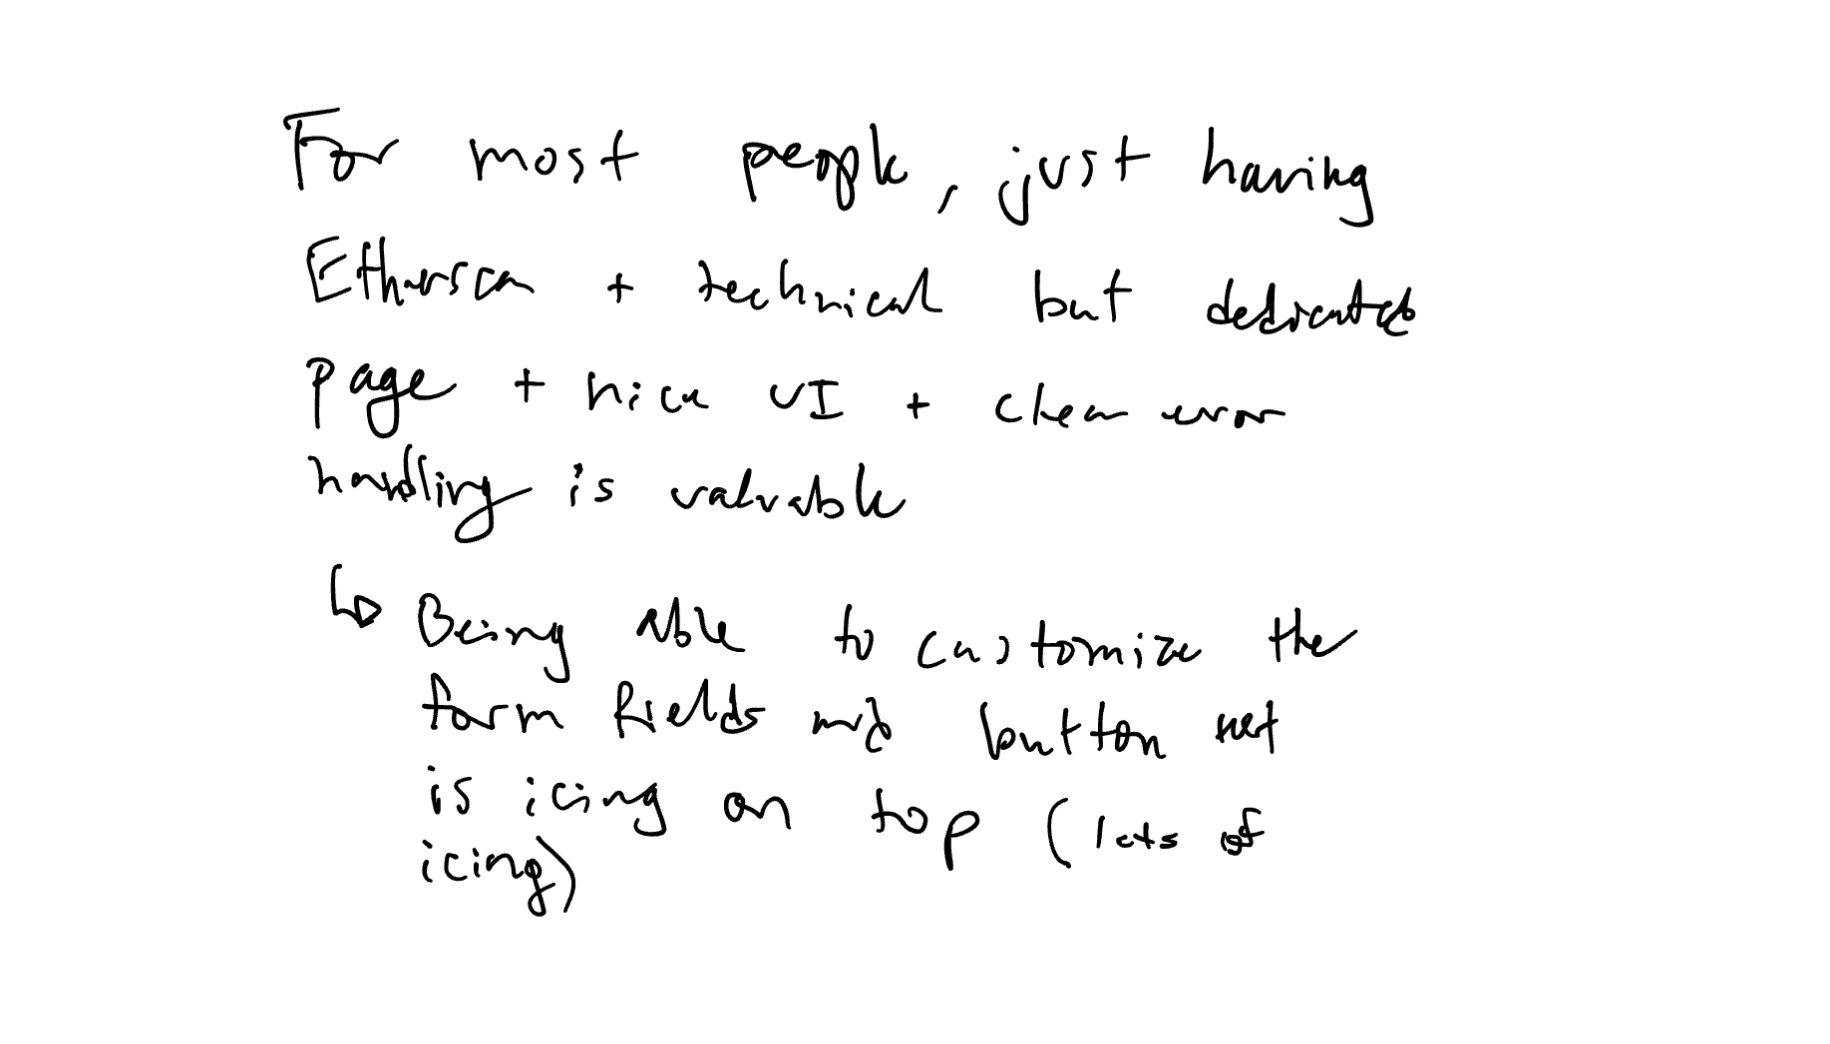 For most people, just having
Etherscan + technical but dedicated
page + nice UI + clean error
handling is valuable
↳ Being able to customize the
form fields and button
is icing on top (lots of
icing)